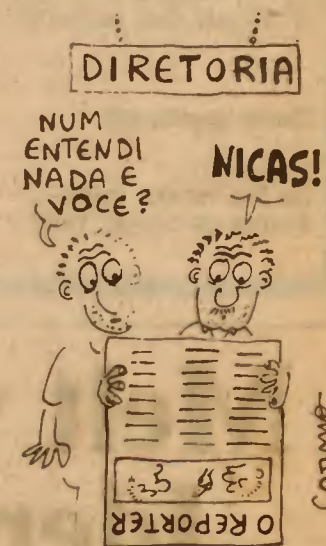 DIRETORIA
NUM
ENTENDI
NADA E
VOCE?
NICAS!
O REPORTER